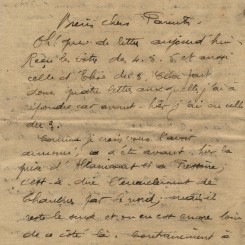 Biens chers Parents.
Oh! que de lettres aujourd'hui.
Reçu le vôtre de 4. 8. 5 et aussi
celle d'Elise du 8. Cela fait
donc quatre lettres auxquelles j'ai à
répondre car avant-hier j'ai eu celle
du 3.
Comme je crois vous l'avoir
annoncé, on a été avant. Sur la
prise d' à
c'est-à-dire l'encerclement de
par le nord, mais il
reste le sud et on en est encore loin
de ce côté là. Contrairement à